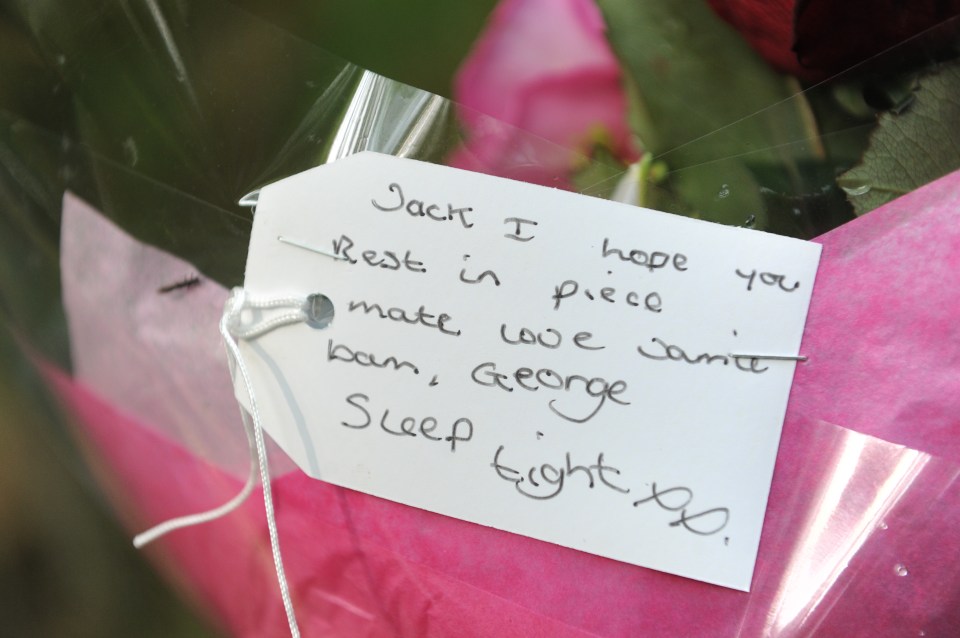 Jack I hope you
Rest in piece
mate love Jamie
bam, George
Sleep tight xx.